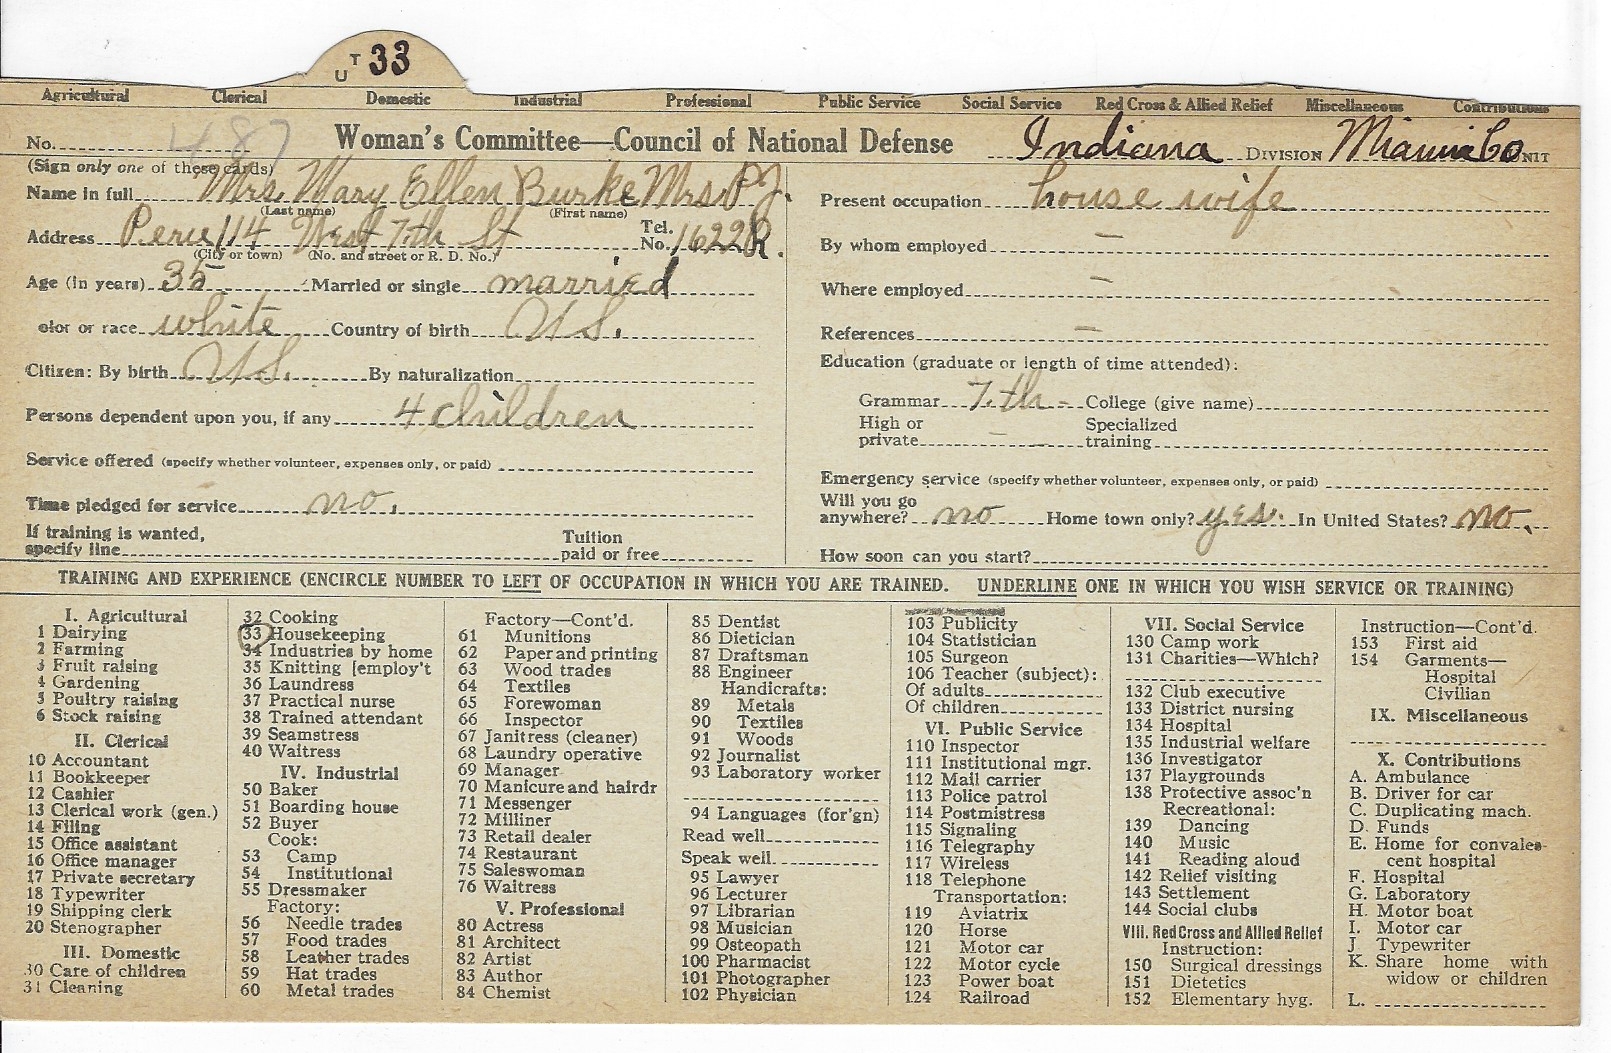 U T 33
Agricultural Clerical Domestic Industrial Professional Public Service Social Service Red Cross & Allied Relief Miscellaneous Contributions
No. 487 Woman's Committee—Council of National Defense Indiana DIVISION Miami Co UNIT
(Sign only one of these cards)
Name in full Mrs. Mary Ellen Burke Mrs. P. J.
(Last name) (First name)
Address Peru 114 West 7th St Tel. No. 1622R.
(City or town) (No. and street or R. D. No.)
Age (in years) 35 Married or single married
olor or race white Country of birth U.S.
Citizen: By birth U.S. By naturalization
Persons dependent upon you, if any 4 children
Service offered (specify whether volunteer, expenses only, or paid)
Time pledged for service no.
If training is wanted, specify line Tuition paid or free
Present occupation house wife
By whom employed –
Where employed –
References –
Education (graduate or length of time attended):
Grammar 7.th - College (give name)
High or private – Specialized training
Emergency service (specify whether volunteer, expenses only, or paid)
Will you go anywhere? no Home town only? yes. In United States? no.
How soon can you start?
TRAINING AND EXPERIENCE (ENCIRCLE NUMBER TO LEFT OF OCCUPATION IN WHICH YOU ARE TRAINED. UNDERLINE ONE IN WHICH YOU WISH SERVICE OR TRAINING)
I. Agricultural
1 Dairying
2 Farming
3 Fruit raising
4 Gardening
5 Poultry raising
6 Stock raising
II. Clerical
10 Accountant
11 Bookkeeper
12 Cashier
13 Clerical work (gen.)
14 Filing
15 Office assistant
16 Office manager
17 Private secretary
18 Typewriter
19 Shipping clerk
20 Stenographer
III. Domestic
30 Care of children
31 Cleaning
32 Cooking
33 Housekeeping
34 Industries by home
35 Knitting [employ't
36 Laundress
37 Practical nurse
38 Trained attendant
39 Seamstress
40 Waitress
IV. Industrial
50 Baker
51 Boarding house
52 Buyer
Cook:
53 Camp
54 Institutional
55 Dressmaker
Factory:
56 Needle trades
57 Food trades
58 Leather trades
59 Hat trades
60 Metal trades
Factory—Cont'd.
61 Munitions
62 Paper and printing
63 Wood trades
64 Textiles
65 Forewoman
66 Inspector
67 Janitress (cleaner)
68 Laundry operative
69 Manager
70 Manicure and hairdr
71 Messenger
72 Milliner
73 Retail dealer
74 Restaurant
75 Saleswoman
76 Waitress
V. Professional
80 Actress
81 Architect
82 Artist
83 Author
84 Chemist
85 Dentist
86 Dietician
87 Draftsman
88 Engineer
Handicrafts:
89 Metals
90 Textiles
91 Woods
92 Journalist
93 Laboratory worker
94 Languages (for'gn)
Read well
Speak well
95 Lawyer
96 Lecturer
97 Librarian
98 Musician
99 Osteopath
100 Pharmacist
101 Photographer
102 Physician
103 Publicity
104 Statistician
105 Surgeon
106 Teacher (subject):
Of adults
Of children
VI. Public Service
110 Inspector
111 Institutional mgr.
112 Mail carrier
113 Police patrol
114 Postmistress
115 Signaling
116 Telegraphy
117 Wireless
118 Telephone
Transportation:
119 Aviatrix
120 Horse
121 Motor car
122 Motor cycle
123 Power boat
124 Railroad
VII. Social Service
130 Camp work
131 Charities—Which?
132 Club executive
133 District nursing
134 Hospital
135 Industrial welfare
136 Investigator
137 Playgrounds
138 Protective assoc'n
Recreational:
139 Dancing
140 Music
141 Reading aloud
142 Relief visiting
143 Settlement
144 Social clubs
VIII. Red Cross and Allied Relief
Instruction:
150 Surgical dressings
151 Dietetics
152 Elementary hyg.
Instruction—Cont'd.
153 First aid
154 Garments—
Hospital
Civilian
IX. Miscellaneous
X. Contributions
A. Ambulance
B. Driver for car
C. Duplicating mach.
D. Funds
E. Home for convales-
cent hospital
F. Hospital
G. Laboratory
H. Motor boat
I. Motor car
J. Typewriter
K. Share home with
widow or children
L.